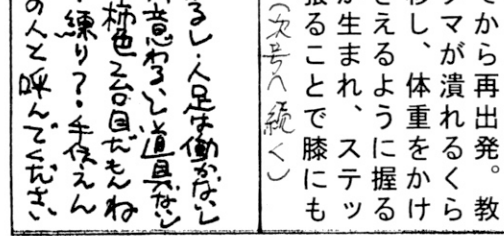 てから再出発。教
マが潰れるくら
し、体重をかけ
さえるように握る
が生まれ、ステッ
張ることで膝にも
（次号へ続く）
るし・人足は働かないし
意わるいし道具ないし
柿色2台目だもんね
練り？・手伝えん
の人と呼んでください